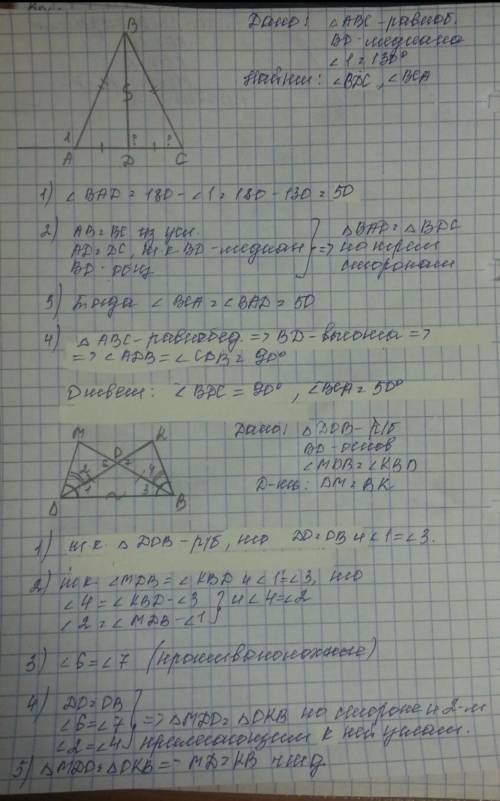 B
Дано: △ABC-равноб.
BD-медиана
∠1=130°
Найти: ∠BDC, ∠BCA
1 ? ?
A D C
1) ∠BAD=180-∠1=180-130=50
2) AB=BC из усл.
AD=DC, т.к BD-медиан
BD-общ
} => △BAD=△BDC
по трем
сторонам
3) Тогда ∠BCA=∠BAD=50
4) △ABC-равнобед. => BD-высота =>
=> ∠ADB=∠CDB=90°
Ответ: ∠BDC=90°, ∠BCA=50°
M K
O
6 7
2 4
1 3
D B
Дано: △DOB-р/б
BD-основ
∠MDB=∠KBD
Д-ть: DM=BK
1) т.к. △DOB-р/б, то DO=OB и ∠1=∠3.
2) т.к ∠MDB=∠KBD и ∠1=∠3, то
∠4=∠KBD-∠3 } и ∠4=∠2
∠2=∠MDB-∠1
3) ∠6=∠7 (противоположные)
4) DO=OB
∠6=∠7 } => △MDO=△OKB по стороне и 2-м
∠2=∠4 прилегающим к ней углам.
5) △MDO=△OKB => MD=KB чтд.